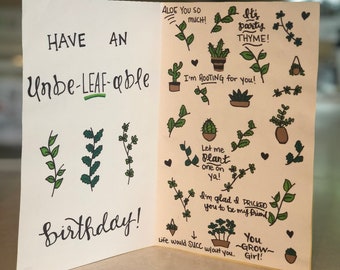 HAVE AN
Unbe-LEAF-able
birthday!
ALOE YOU SO
MUCH!
It's
party
THYME!
I'm ROOTING for you!
Let me
plant
one on
ya!
I'm glad I PRICKED
you to be my friend
Life would SUCC w/out you.
YOU
-GROW-
Girl!